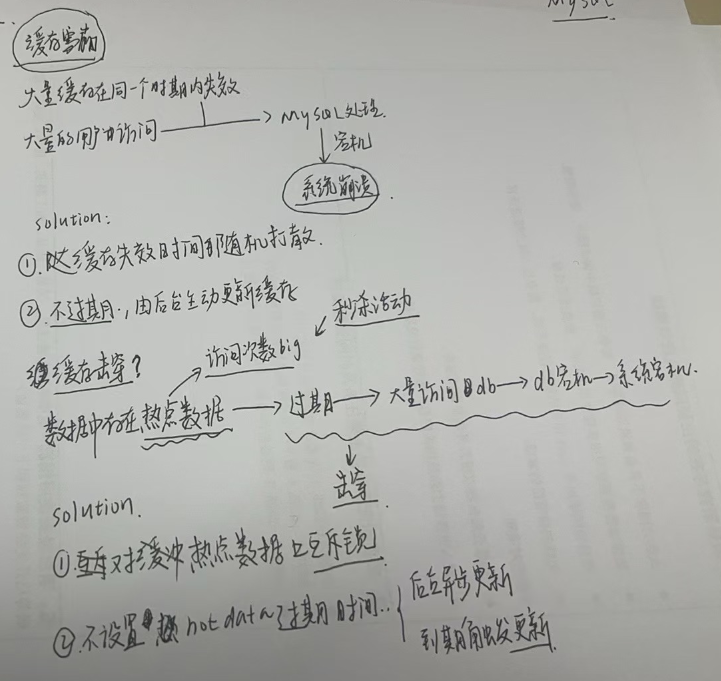 Mysql
缓存雪崩
大量缓存在同一个时期内失效
大量的用户访问 → Mysql处理
宕机
系统崩溃
solution:
①.缓存失效时间那随机打散.
②.不过期.,由后台主动更新缓存
秒杀活动
访问次数big
缓存击穿?
数据中存在热点数据 → 过期 → 大量访问db → db宕机 → 系统宕机.
击穿
solution.
①.对缓冲热点数据上互斥锁
②.不设置 hot data 过期时间..
后台异步更新
到期前触发更新